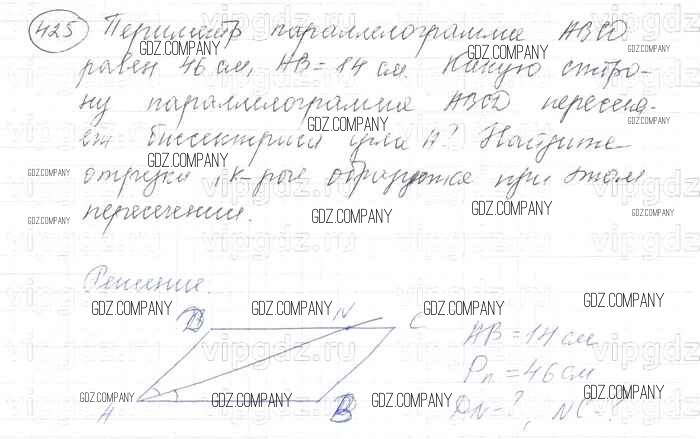 425 Периметр параллелограмма ABCD
равен 46 см, AB = 14 см. Какую сторо-
ну параллелограмма ABCD пересека-
ет биссектриса угла A? Найдите
отрезки, к-рые образуются при этом
пересечении.
Решение.
B N C
AB = 14 см
Pп = 46 см
DN - ?, NC - ?
A B
GDZ.COMPANY
vipgdz.ru